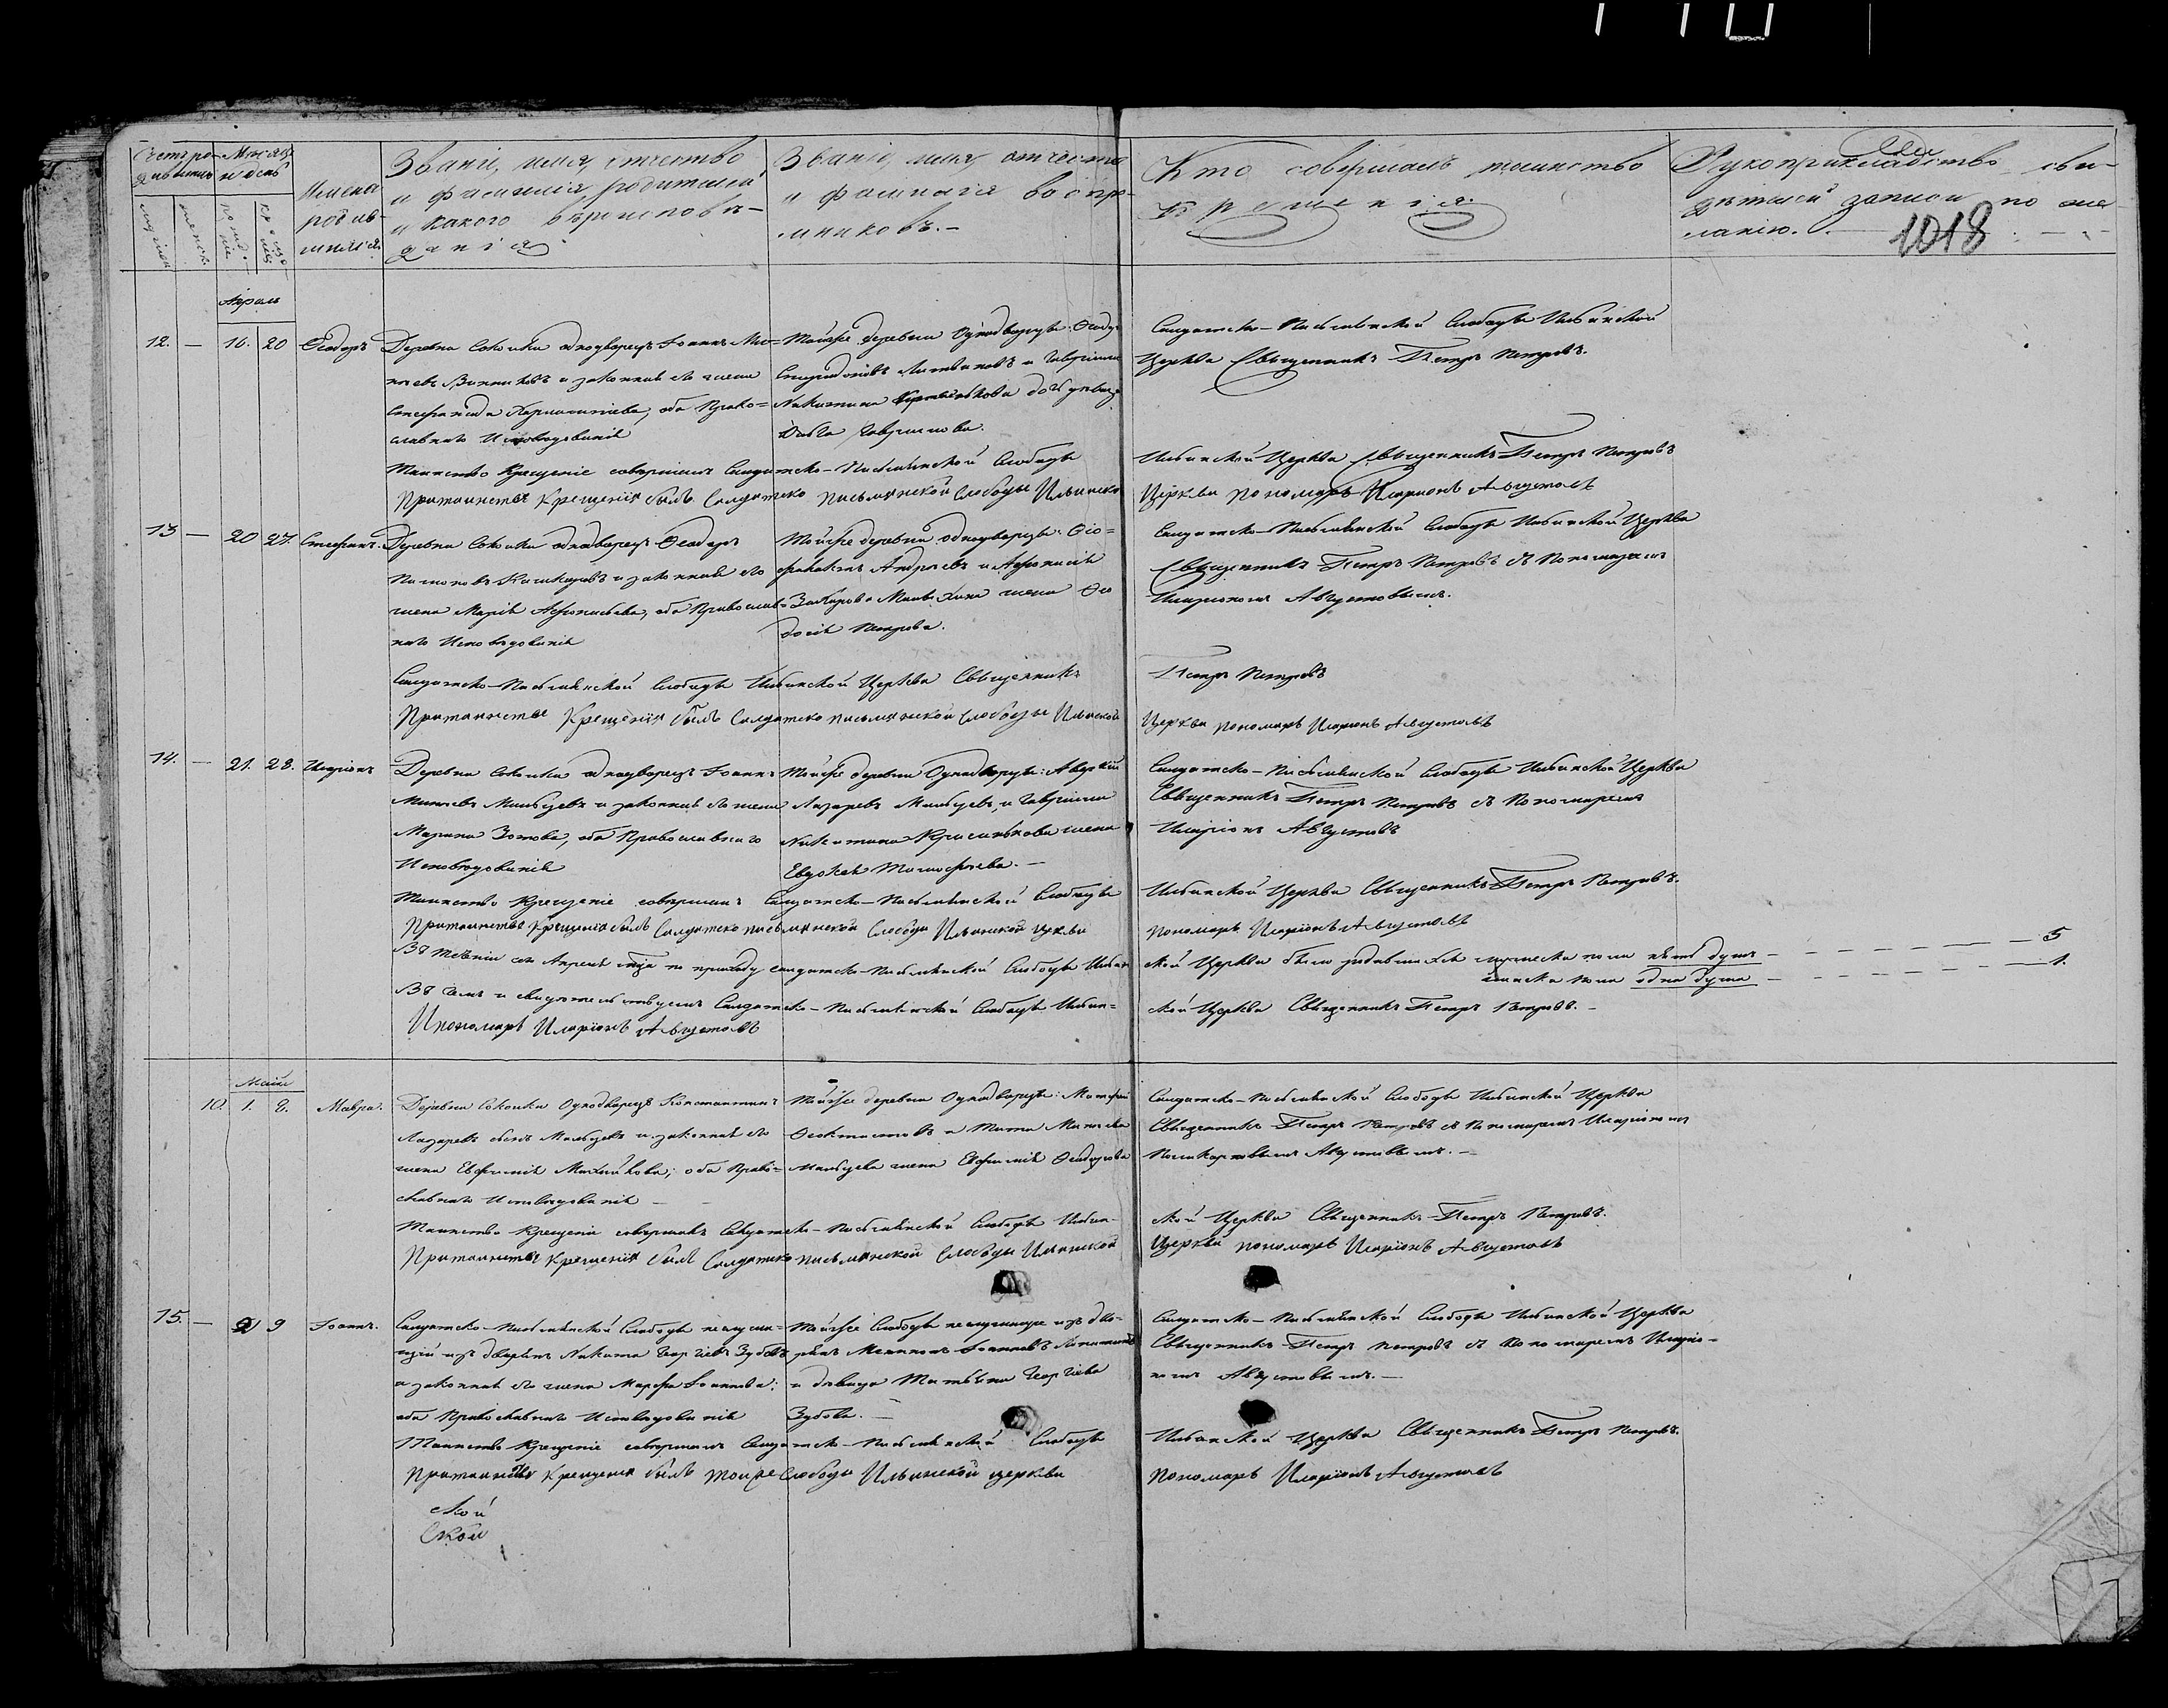 Счетъ родившихся
Мѣсяцъ и день
мужеска
женска
рожденія
крещенія
Имена родившихся
Званіе, имя, отчество
и фамилія родителей
и какого вѣроисповѣ-
данія
Званіе, имя, отчество
и фамилія воспрі-
емниковъ.
Кто совершалъ таинство
крещенія.
Рукоприкладство сви-
дѣтелей записи по же-
ланію.
1018
Апрѣль
12. — 16. 20 Ѳеодоръ
Деревни Соколки однодворецъ Іоаннъ Ми-
и законная его жена
оба Право-
славнаго Исповѣданія
Тойже деревни Однодворцы: Ѳеодоръ
и Гавріила
Никитина дочь дѣвица
Гаврилова.
Солдатско-Письмянской Слободы Ильинской
Церкви Священникъ Петръ Петровъ.
Таинство Крещенія совершилъ Солдатско-Письмянской Слободы
Ильинской Церкви Священникъ Петръ Петровъ
При таинствѣ Крещенія былъ Солдатско письмянской Слободы Ильинской
Церкви пономарь Иларіонъ Августовъ
13 — 20 27. Стефанъ.
Деревни Соколки однодворецъ Ѳеодоръ
и законная его
жена Марія Аѳонасьева, оба Православ-
наго Исповѣданія
Тойже деревни однодворцы: Ѳео-
Андреевъ и Аѳонасія
Захарова жена Ѳео
досія Петрова.
Солдатско-Письмянской Слободы Ильинской Церкви
Священникъ Петръ Петровъ съ Пономаремъ
Иларіономъ Августовымъ.
Солдатско-Письмянской Слободы Ильинской Церкви Священникъ
Петръ Петровъ
При таинствѣ Крещенія былъ Солдатско письмянской Слободы Ильинской
Церкви пономарь Иларіонъ Августовъ
14. — 21. 28. Иларіонъ
Деревни Соколки однодворецъ Іоаннъ
Мальцевъ и законная его жена
Марина Зотова, оба Православнаго
Исповѣданія
Тойже деревни Однодворцы: Аверкій
Лазаревъ Мальцевъ, и Гавріила
Никитина жена
Евдокія Тимофеева. —
Солдатско-Письмянской Слободы Ильинской Церкви
Священникъ Петръ Петровъ съ Пономаремъ
Иларіонъ Августовъ
Таинство Крещенія совершилъ Солдатско-Письмянской Слободы
Ильинской Церкви Священникъ Петръ Петровъ.
При таинствѣ Крещенія былъ Солдатско письмянской Слободы Ильинской церкви
пономарь Иларіонъ Августовъ
Въ теченіи сего Апреля мѣсяца по приходу солдатско-Письмянской Слободы Ильин
ской Церкви было родившихся мужеска пола пять душъ — 5
женска пола одна душа — 1.
Въ чемъ и свидѣтельствуемъ Солдатско-Письмянской Слободы Ильин-
ской Церкви Священникъ Петръ Петровъ. —
И пономарь Иларіонъ Августовъ
Майя
10. 1. 8. Мавра.
Деревни Соколки Однодворецъ Константинъ
Лазаревъ сынъ Мальцевъ и законная его
жена Евфимія оба Право-
славнаго Исповѣданія —
Тойже деревни Однодворцы: Матфей
Ѳеоктистовъ и Тита
Мальцева жена Евфимія Ѳеодорова
Солдатско-Письмянской Слободы Ильинской Церкви
Священникъ Петръ Петровъ съ Пономаремъ Иларіономъ
Августовымъ. —
Таинство Крещенія совершилъ Солдатско-Письмянской Слободы Ильин-
ской Церкви Священникъ Петръ Петровъ.
При таинствѣ Крещенія былъ Солдатско письмянской Слободы Ильинской
Церкви пономарь Иларіонъ Августовъ
15. — 2 9 Іоаннъ.
Солдатско-Письмянской Слободы неслужа-
щій изъ дворянъ Никита Георгіевъ Зубовъ
и законная его жена Марѳа Іоаннова:
оба Православнаго Исповѣданія
Тойже Слободы неслужащіе изъ дво-
рянъ Іоанновъ
и дѣвица Татьяна Георгіева
Зубова. —
Солдатско-Письмянской Слободы Ильинской Церкви
Священникъ Петръ Петровъ съ Пономаремъ Иларіо-
номъ Августовымъ. —
Таинство Крещенія совершилъ Солдатско-Письмянской Слободы
Ильинской Церкви Священникъ Петръ Петровъ.
При таинствѣ Крещенія былъ тойже Слободы Ильинской церкви
пономарь Иларіонъ Августовъ
ской
Ской